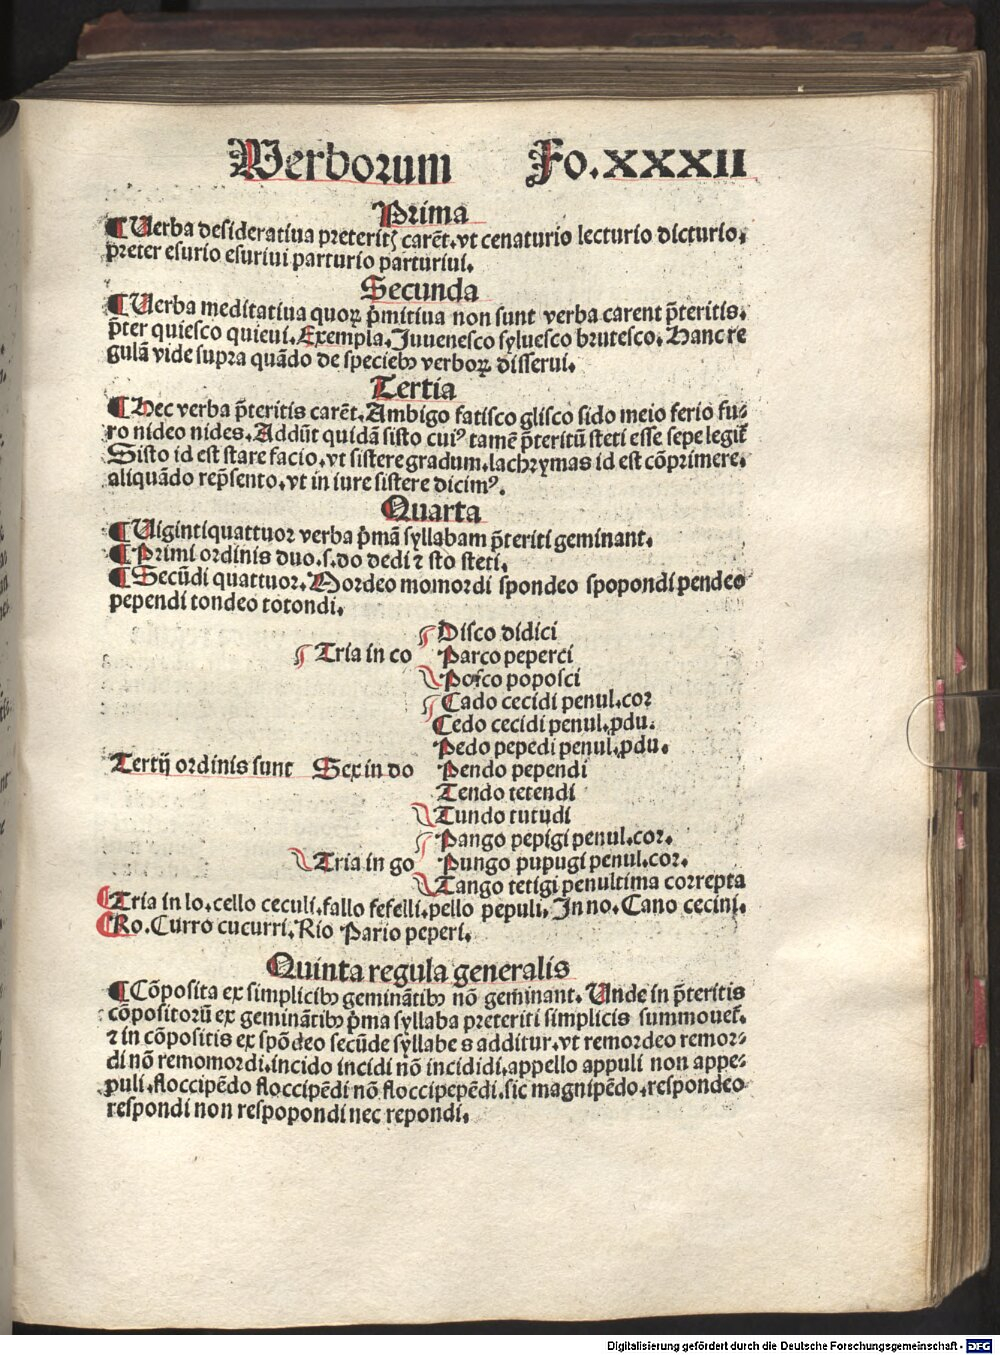 Verborum Fo.XXXII
Prima
¶ Verba desideratiua preteritꝭ carēt.vt cenaturio lecturio dicturio.
preter esurio esuriui parturio parturiui.
Secunda
¶ Verba meditatiua quoꝝ p̄mitiua non sunt verba carent p̄teritis.
p̄ter quiesco quieui.Exempla.Juuenesco syluesco brutesco.Hanc re
gulā vide supra quādo de speciebꝰ verboꝝ disserui.
Tertia
¶ Hec verba p̄teritis carēt.Ambigo fatisco glisco sido meio ferio fu⸗
ro nideo nides.Addūt quidā sisto cuiꝰ tamē p̄teritū steti esse sepe legit̄
Sisto id est stare facio.vt sistere gradum.lachrymas id est cōprimere.
aliquādo rep̄sento.vt in iure sistere dicimꝰ.
Quarta
¶ Uigintiquattuor verba p̄mā syllabam p̄teriti geminant.
¶ Primi ordinis duo.s.do dedi ⁊ sto steti.
¶ Secūdi quattuor.Mordeo momordi spondeo spopondi pendeo
pependi tondeo totondi.
Disco didici
Tria in co Parco peperci
Posco poposci
Cado cecidi penul.cor
Cedo cecidi penul.ꝓdu.
Pedo pepedi penul.ꝓdu.
Tertij ordinis sunt Sex in do Pendo pependi
Tendo tetendi
Tundo tutudi
Pango pepigi penul.cor.
Tria in go Pungo pupugi penul.cor.
Tango tetigi penultima correpta
¶ Tria in lo.cello ceculi.fallo fefelli.pello pepuli.In no.Cano cecini.
¶ Ro.Curro cucurri.Rio Pario peperi.
Quinta regula generalis
¶ Cōposita ex simplicibꝰ geminātibꝰ nō geminant.Unde in p̄teritis
cōpositorū ex geminātibꝰ p̄ma syllaba preteriti simplicis summouet̄.
⁊ in cōpositis ex spōdeo secūde syllabe s additur.vt remordeo remor⸗
di nō remomordi.incido incidi nō incididi.appello appuli non appe⸗
puli.floccipēdo floccipēdi nō floccipepēdi.sic magnipēdo.respondeo
respondi non respopondi nec repondi.
Digitalisierung gefördert durch die Deutsche Forschungsgemeinschaft - DFG